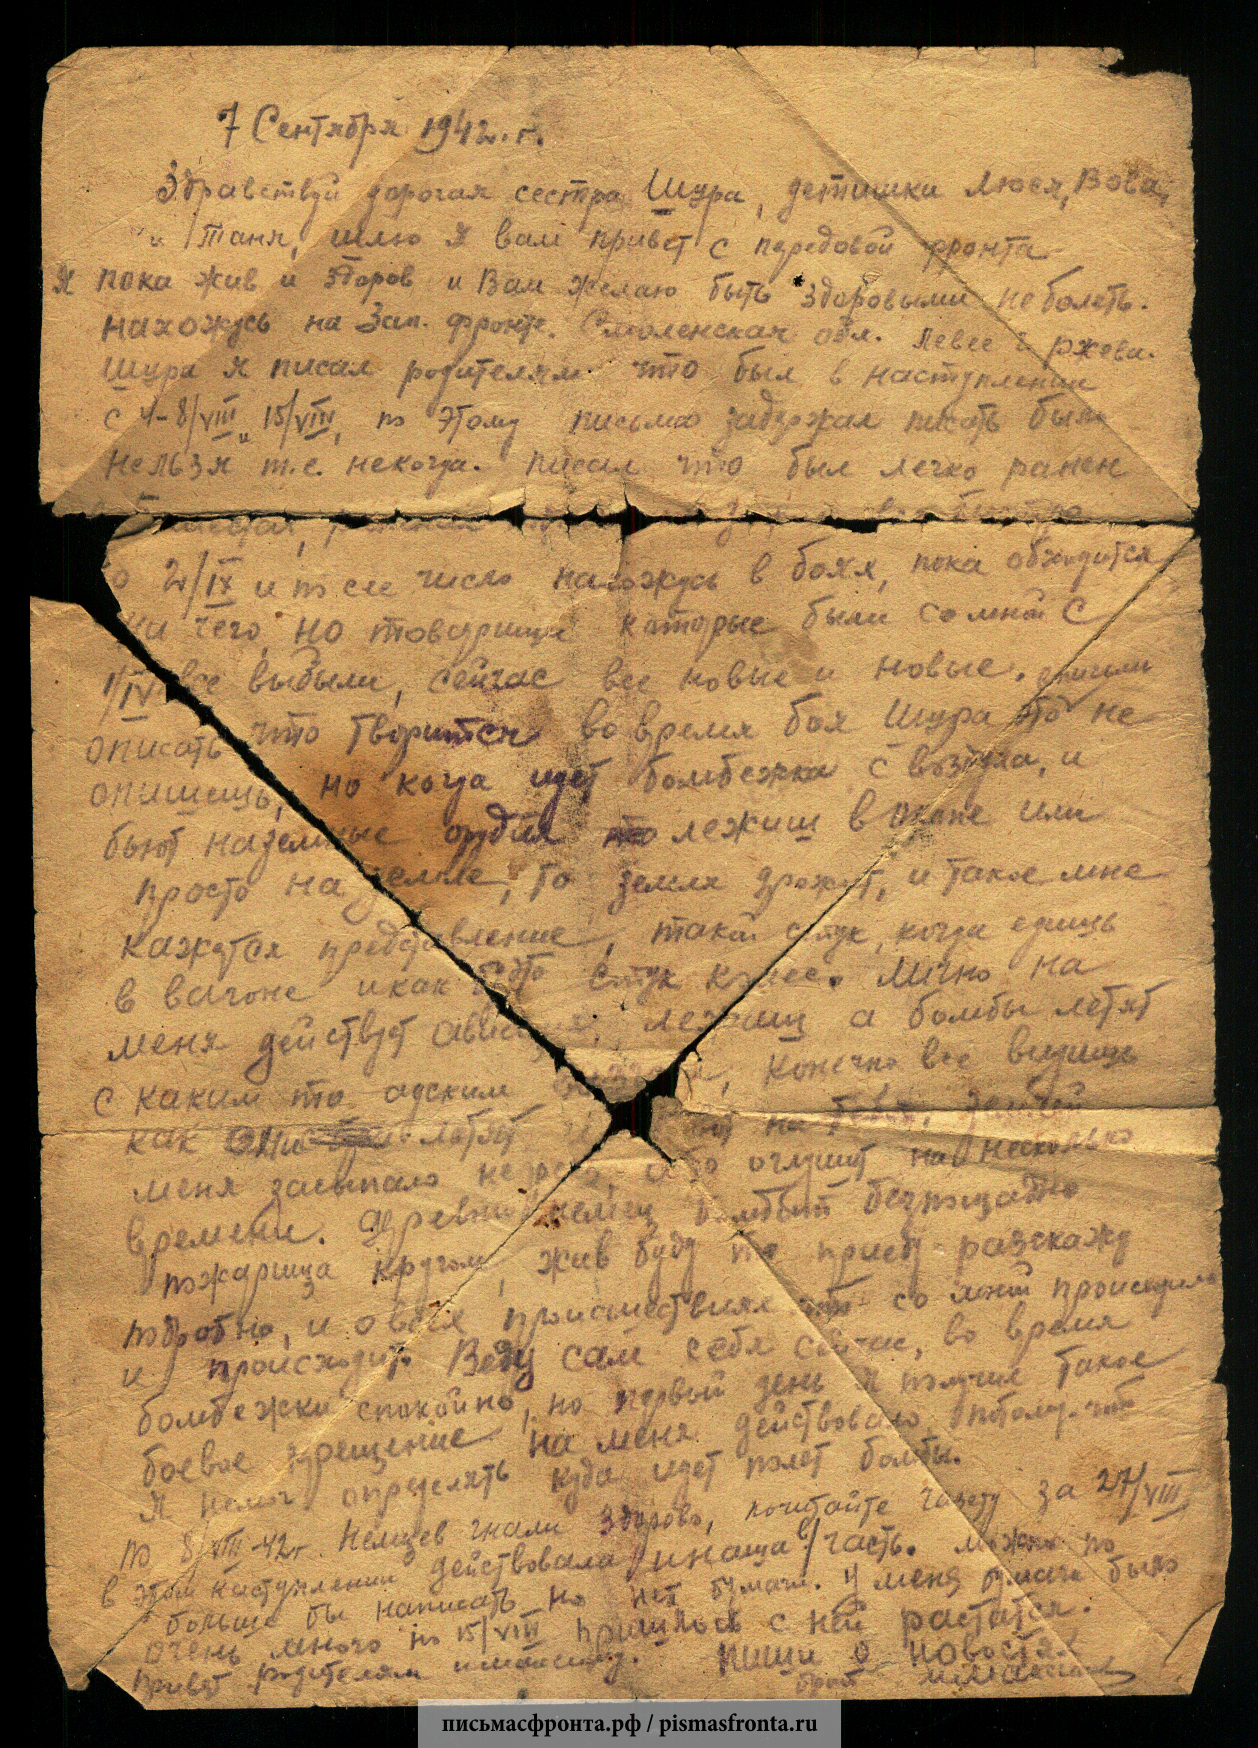 7 Сентября 1942. г.
Здравствуй дорогая сестра Шура, детишки Люся, Вова,
и Таня, шлю я вам привет с передовой фронта
Я пока жив и здоров и Вам желаю быть здоровыми не болеть.
нахожусь на Зап. фронте. Смоленская обл. левее г Ржева.
Шура я писал родителям что был в наступлении
с 4-8/VIII 15/VIII, по этому письмо задержал писать было
нельзя т.е. некогда. писал что был легко ранен
все быстро
2/IX и по сие число нахожусь в боях, пока обходится
ни чего, но товарищи которые были со мной с
1/IV все выбыли, сейчас все новые и новые.
описать что творится во время боя Шура то не
опишешь, но когда идет бомбежка с воздуха, и
бьют наземные орудия то лежиш в окопе или
просто на земле, то земля дрожит, и такое мне
кажется представление, такой стук, когда едишь
в вагоне и как будто стук колес. Лично на
меня действует авиация, лежиш а бомбы летят
с каким то адским конечно все видишь
как они летят и на
меня засыпало не раз, оглушит на несколько
времени. Деревни немец бомбит безпощадно
пожарища кругом, жив буду то приеду разскажу
подробно, и о всех происшествиях что со мной происходило
и происходит. Веду сам себя сейчас, во время
бомбежки спокойно, но первый день я получил такое
боевое крещение на меня действовало потому-что
Я немог определять куда идет полет бомбы.
по 8/VIII-42г Немцев гнали здорово, почитайте газету за 27/VIII
в этом наступлении действовала и наша часть. можно по
больше бы написать но нет бумаги. у меня бумаги было
очень много но 15/VIII пришлось с ней растатся.
Привет родителям Пиши о новостях.
брат
письмасфронта.рф / pismasfronta.ru